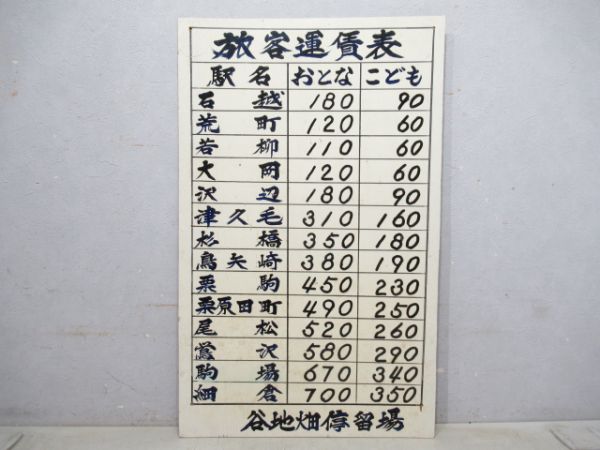 旅客運賃表
駅名 おとな こども
石越 180 90
荒町 120 60
若柳 110 60
大岡 120 60
沢辺 180 90
津久毛 310 160
杉橋 350 180
鳥矢崎 380 190
栗駒 450 230
栗原田町 490 250
尾松 520 260
鶯沢 580 290
駒場 670 340
細倉 700 350
谷地畑停留場